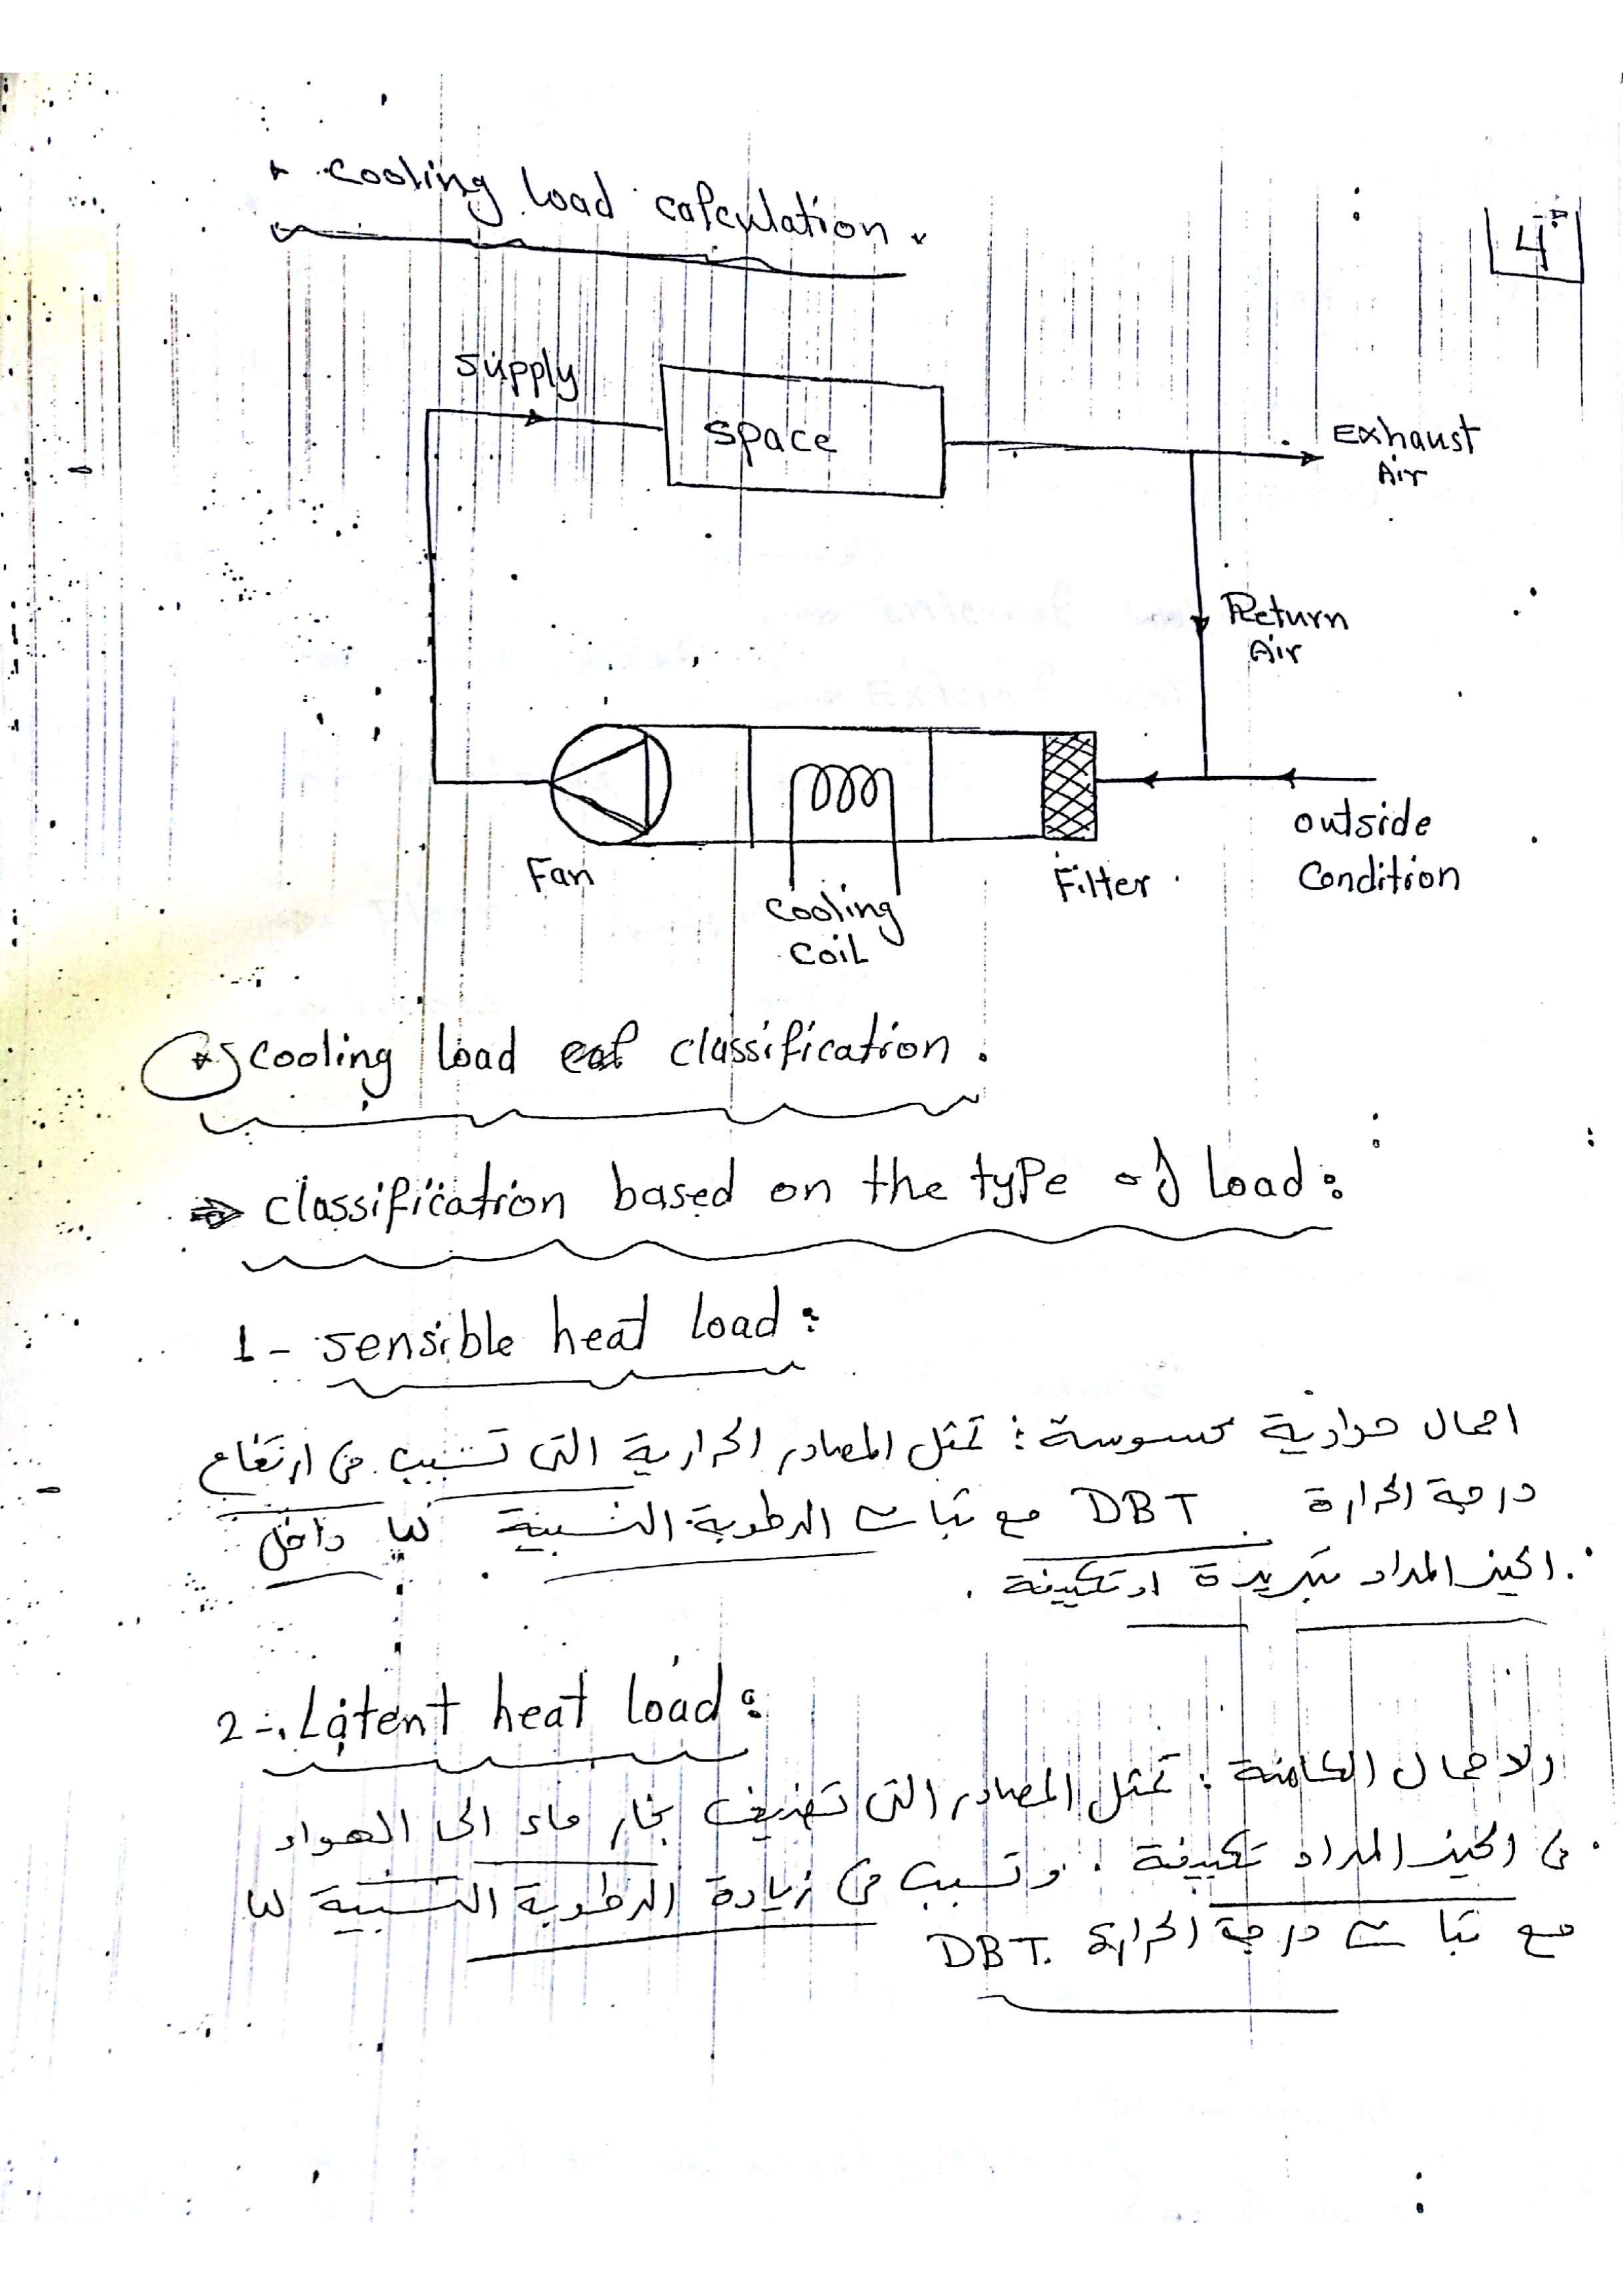 * cooling load calculation.
4
supply
space
Exhaust
Air
Return
Air
Fan
cooling
coil
Filter
outside
Condition
* cooling load classification.
⇒ classification based on the type of load:
1- sensible heat load:
احمال حرارية محسوسة: تمثل المصادر الحرارية التى تسبب فى ارتفاع
درجة الحرارة DBT مع ثبات الرطوبة النسبية داخل
الحيز المراد تبريدة او تكييفة.
2- Latent heat load:
الاحمال الكامنة: تمثل المصادر التى تضيف بخار ماء الى الهواء
فى الحيز المراد تكييفة. وتسبب فى زيادة الرطوبة النسبية
مع ثبات درجة الحرارة DBT.